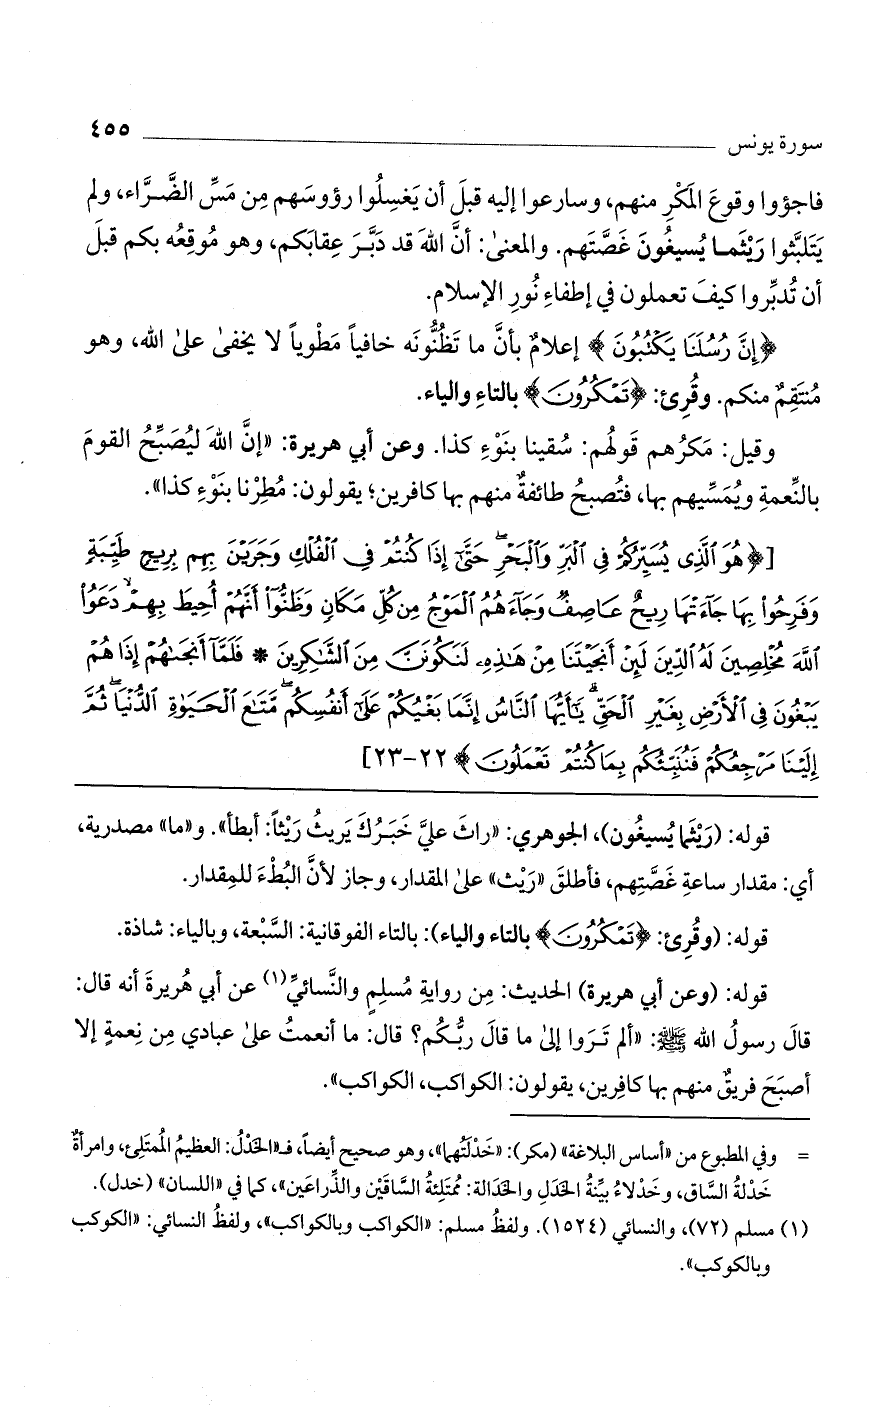 سورة يونس ٤٥٥
فاجؤوا وقوعَ المَكْرِ منهم، وسارعوا إليه قبلَ أن يَغسِلُوا رؤوسَهم مِن مَسِّ الضَّرَّاء، ولم
يَتَلبَّثوا رَيْثَما يُسيغُونَ غَصَّتَهم. والمعنىٰ: أنَّ اللهَ قد دَبَّرَ عِقابَكم، وهو مُوقِعُه بكم قبلَ
أن تُدبِّروا كيفَ تعملون في إطفاءِ نُورِ الإسلام.
﴿إِنَّ رُسُلَنَا يَكْتُبُونَ﴾ إعلامٌ بأنَّ ما تَظُنُّونَه خافياً مَطْوياً لا يخفىٰ علىٰ الله، وهو
مُنتَقِمٌ منكم. وقُرِئ: ﴿تَمْكُرُونَ﴾ بالتاءِ والياء.
وقيل: مَكرُهم قَولُهم: سُقينا بنَوْءِ كذا. وعن أبي هريرة: «إنَّ اللهَ ليُصَبِّحُ القومَ
بالنِّعمةِ ويُمَسِّيهم بها، فتُصبحُ طائفةٌ منهم بها كافرين؛ يقولون: مُطِرْنا بنَوْءِ كذا».
[﴿هُوَ ٱلَّذِى يُسَيِّرُكُمْ فِى ٱلْبَرِّ وَٱلْبَحْرِ ۖ حَتَّىٰٓ إِذَا كُنتُمْ فِى ٱلْفُلْكِ وَجَرَيْنَ بِهِم بِرِيحٍ طَيِّبَةٍ
وَفَرِحُوا۟ بِهَا جَآءَتْهَا رِيحٌ عَاصِفٌ وَجَآءَهُمُ ٱلْمَوْجُ مِن كُلِّ مَكَانٍ وَظَنُّوٓا۟ أَنَّهُمْ أُحِيطَ بِهِمْ ۙ دَعَوُا۟
ٱللَّهَ مُخْلِصِينَ لَهُ ٱلدِّينَ لَئِنْ أَنجَيْتَنَا مِنْ هَـٰذِهِۦ لَنَكُونَنَّ مِنَ ٱلشَّـٰكِرِينَ * فَلَمَّآ أَنجَىٰهُمْ إِذَا هُمْ
يَبْغُونَ فِى ٱلْأَرْضِ بِغَيْرِ ٱلْحَقِّ ۗ يَـٰٓأَيُّهَا ٱلنَّاسُ إِنَّمَا بَغْيُكُمْ عَلَىٰٓ أَنفُسِكُم ۖ مَّتَـٰعَ ٱلْحَيَوٰةِ ٱلدُّنْيَا ۖ ثُمَّ
إِلَيْنَا مَرْجِعُكُمْ فَنُنَبِّئُكُم بِمَا كُنتُمْ تَعْمَلُونَ﴾ ٢٢-٢٣]
قوله: (رَيْثما يُسيغُون)، الجوهري: «راثَ عليَّ خَبَرُكَ يَريثُ رَيْثاً: أبطأ». و«ما» مصدرية،
أي: مقدار ساعةِ غَصَّتِهم، فأطلقَ «رَيْث» علىٰ المقدار، وجاز لأنَّ البُطْءَ للمِقدار.
قوله: (وقُرِئ: ﴿تَمْكُرُونَ﴾ بالتاء والياء): بالتاء الفوقانية: السَّبْعة، وبالياء: شاذة.
قوله: (وعن أبي هريرة) الحديث: مِن روايةِ مُسلِمٍ والنَّسائيِّ(١) عن أبي هُريرةَ أنه قال:
قالَ رسولُ الله ﷺ: «ألم تَرَوا إلىٰ ما قالَ ربُّكُم؟ قال: ما أنعمتُ علىٰ عبادي مِن نِعمةٍ إلا
أصبَحَ فريقٌ منهم بها كافِرين، يقولون: الكواكب، الكواكب».
= وفي المطبوع من «أساس البلاغة» (مكر): «خَدْلَتُهما»، وهو صحيح أيضاً، فـ«الخَدْلُ: العظيمُ المُمتَلِئ، وامرأةٌ
خَدْلةُ السَّاق، وخَدْلاءُ بيِّنةُ الخَدَلِ والخَدالة: مُمتَلِئةُ الساقَيْن والذِّراعَين»، كما في «اللسان» (خدل).
(١) مسلم (٧٢)، والنسائي (١٥٢٤). ولفظُ مسلم: «الكواكب وبالكواكب»، ولفظُ النسائي: «الكوكب
وبالكوكب».